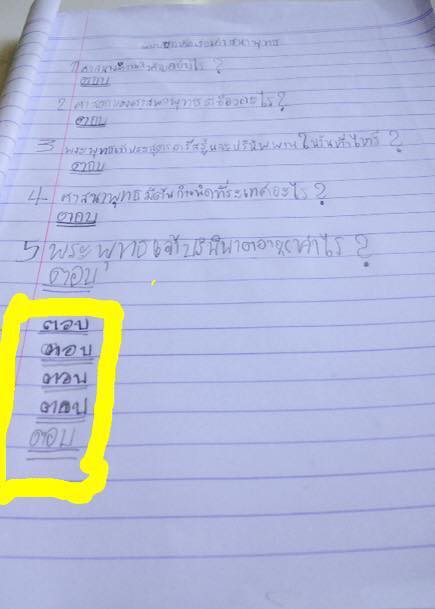 แบบฝึกหัดเรื่องศาสนาพุทธ
1 ศาสนา คืออะไร ?
ตอบ
2 ศาสดาของศาสนาพุทธ ชื่อว่าอะไร?
ตอบ
3 พระพุทธเจ้าประสูตรตรัสรู้และปรินิพพาน ในวันที่เท่าไหร่ ?
ตอบ
4 ศาสนาพุทธมีต้นกำเนิดที่ประเทศอะไร ?
ตอบ
5 พระพุทธเจ้าปรินิพานตอนอายุเท่าไร ?
ตอบ
ตอบ
ตอบ
ตอบ
ตอบ
ตอบ